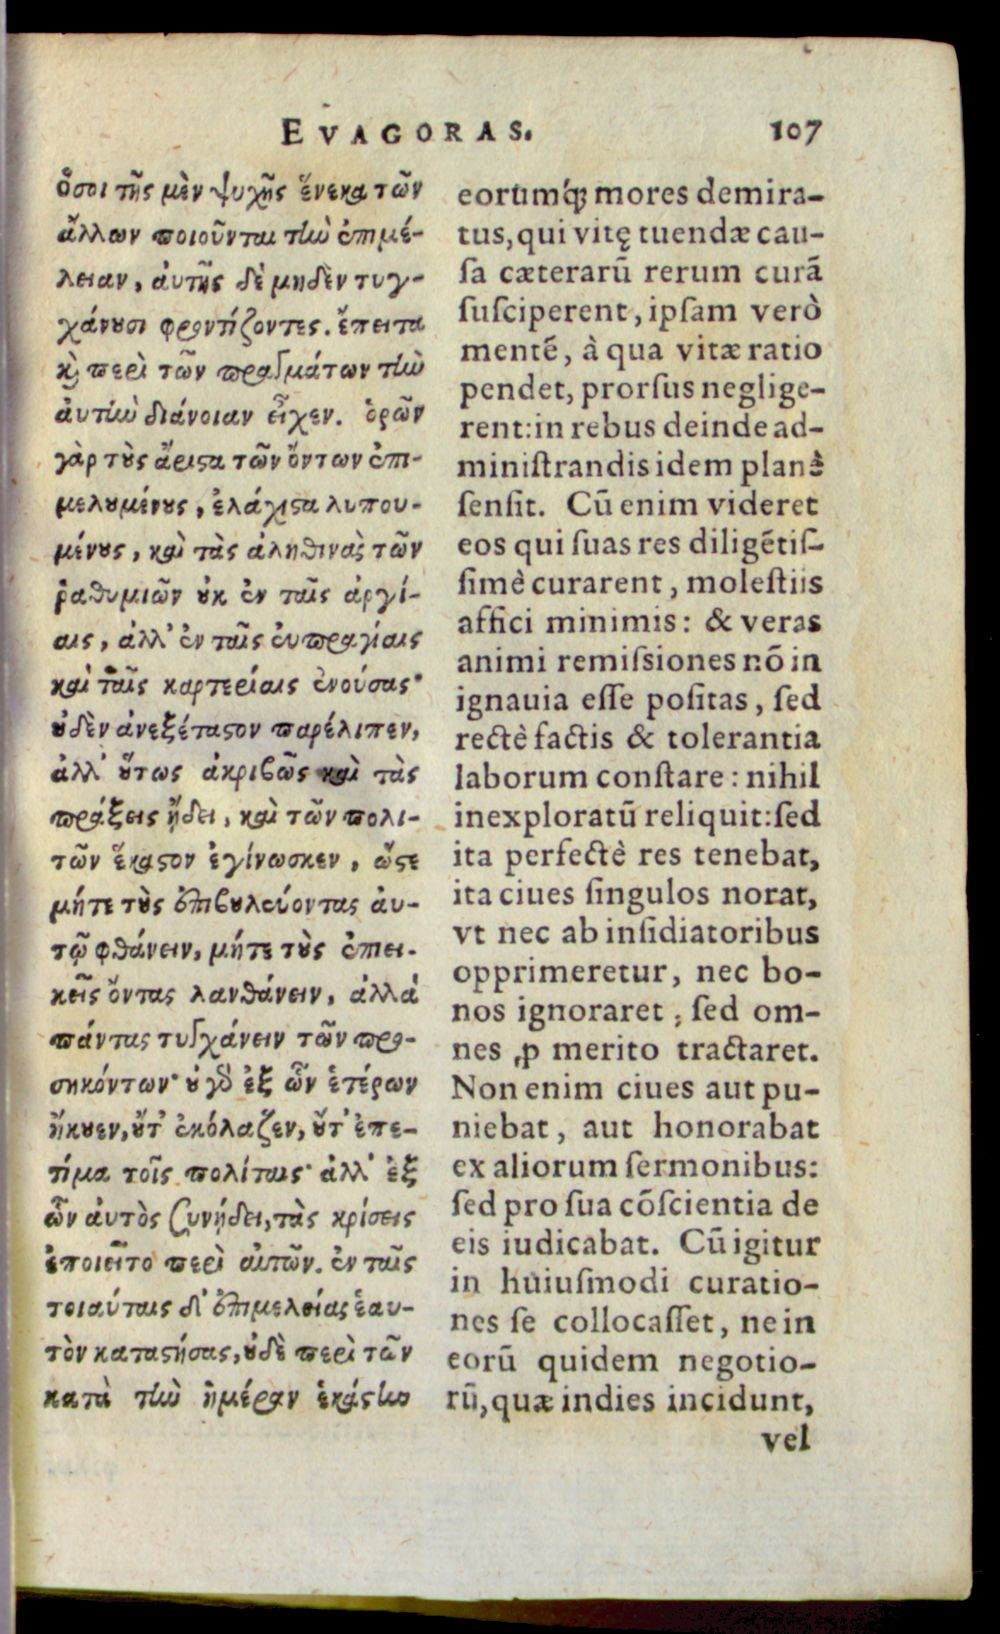 EVAGORAS. 107
ὅσοι τῆς μὲν ψυχῆς ἕνεκα τῶν
ἄλλων ποιοῦνται τὴν ἐπιμέ-
λειαν, ἀυτῆς δὲ μηδὲν τυγ-
χάνουσι φροντίζοντες. ἔπειτα
καὶ περὶ τῶν πραγμάτων τὴν
ἀυτὴν διάνοιαν εἶχεν. ὁρῶν
γὰρ τοὺς ἄριστα τῶν ὄντων ἐπι-
μελουμένους, ἐλάχιστα λυπου-
μένους, καὶ τὰς ἀληθινὰς τῶν
ῥαθυμιῶν οὐκ ἐν ταῖς ἀργί-
αις, ἀλλ' ἐν ταῖς ἐυπραγίαις
καὶ ταῖς καρτερίαις ἐνούσας·
οὐδὲν ἀνεξέταστον παρέλιπεν,
ἀλλ' οὕτως ἀκριβῶς καὶ τὰς
πράξεις ᾔδει, καὶ τῶν πολι-
τῶν ἕκαστον ἐγίνωσκεν, ὥστε
μήτε τοὺς ἐπιβουλεύοντας ἀυ-
τῷ φθάνειν, μήτε τοὺς ἐπιει-
κεῖς ὄντας λανθάνειν, ἀλλὰ
πάντας τυγχάνειν τῶν προ-
σηκόντων· οὐ γὰρ ἐξ ὧν ἑτέρων
ἤκουεν, οὔτ' ἐκόλαζεν, οὔτ' ἐπε-
τίμα τοῖς πολίταις· ἀλλ' ἐξ
ὧν ἀυτὸς συνῄδει, τὰς κρίσεις
ἐποιεῖτο περὶ αὐτῶν. ἐν ταῖς
τοιαύταις δ' ἐπιμελείας ἑαυ-
τὸν καταστήσας, οὐδὲ περὶ τῶν
κατὰ τὴν ἡμέραν ἑκάστην
eorumq́; mores demira-
tus, qui vitę tuendæ cau-
sa cæterarũ rerum curã
susciperent, ipsam verò
mentẽ, à qua vitæ ratio
pendet, prorsus neglige-
rent: in rebus deinde ad-
ministrandis idem planè
sensit. Cũ enim videret
eos qui suas res diligẽtis-
simè curarent, molestiis
affici minimis: & veras
animi remissiones nõ in
ignauia esse positas, sed
rectè factis & tolerantia
laborum constare: nihil
inexploratũ reliquit: sed
ita perfectè res tenebat,
ita ciues singulos norat,
vt nec ab insidiatoribus
opprimeretur, nec bo-
nos ignoraret; sed om-
nes ꝓ merito tractaret.
Non enim ciues aut pu-
niebat, aut honorabat
ex aliorum sermonibus:
sed pro sua cõscientia de
eis iudicabat. Cũ igitur
in huiusmodi curatio-
nes se collocasset, ne in
eorũ quidem negotio-
rũ, quæ indies incidunt,
vel